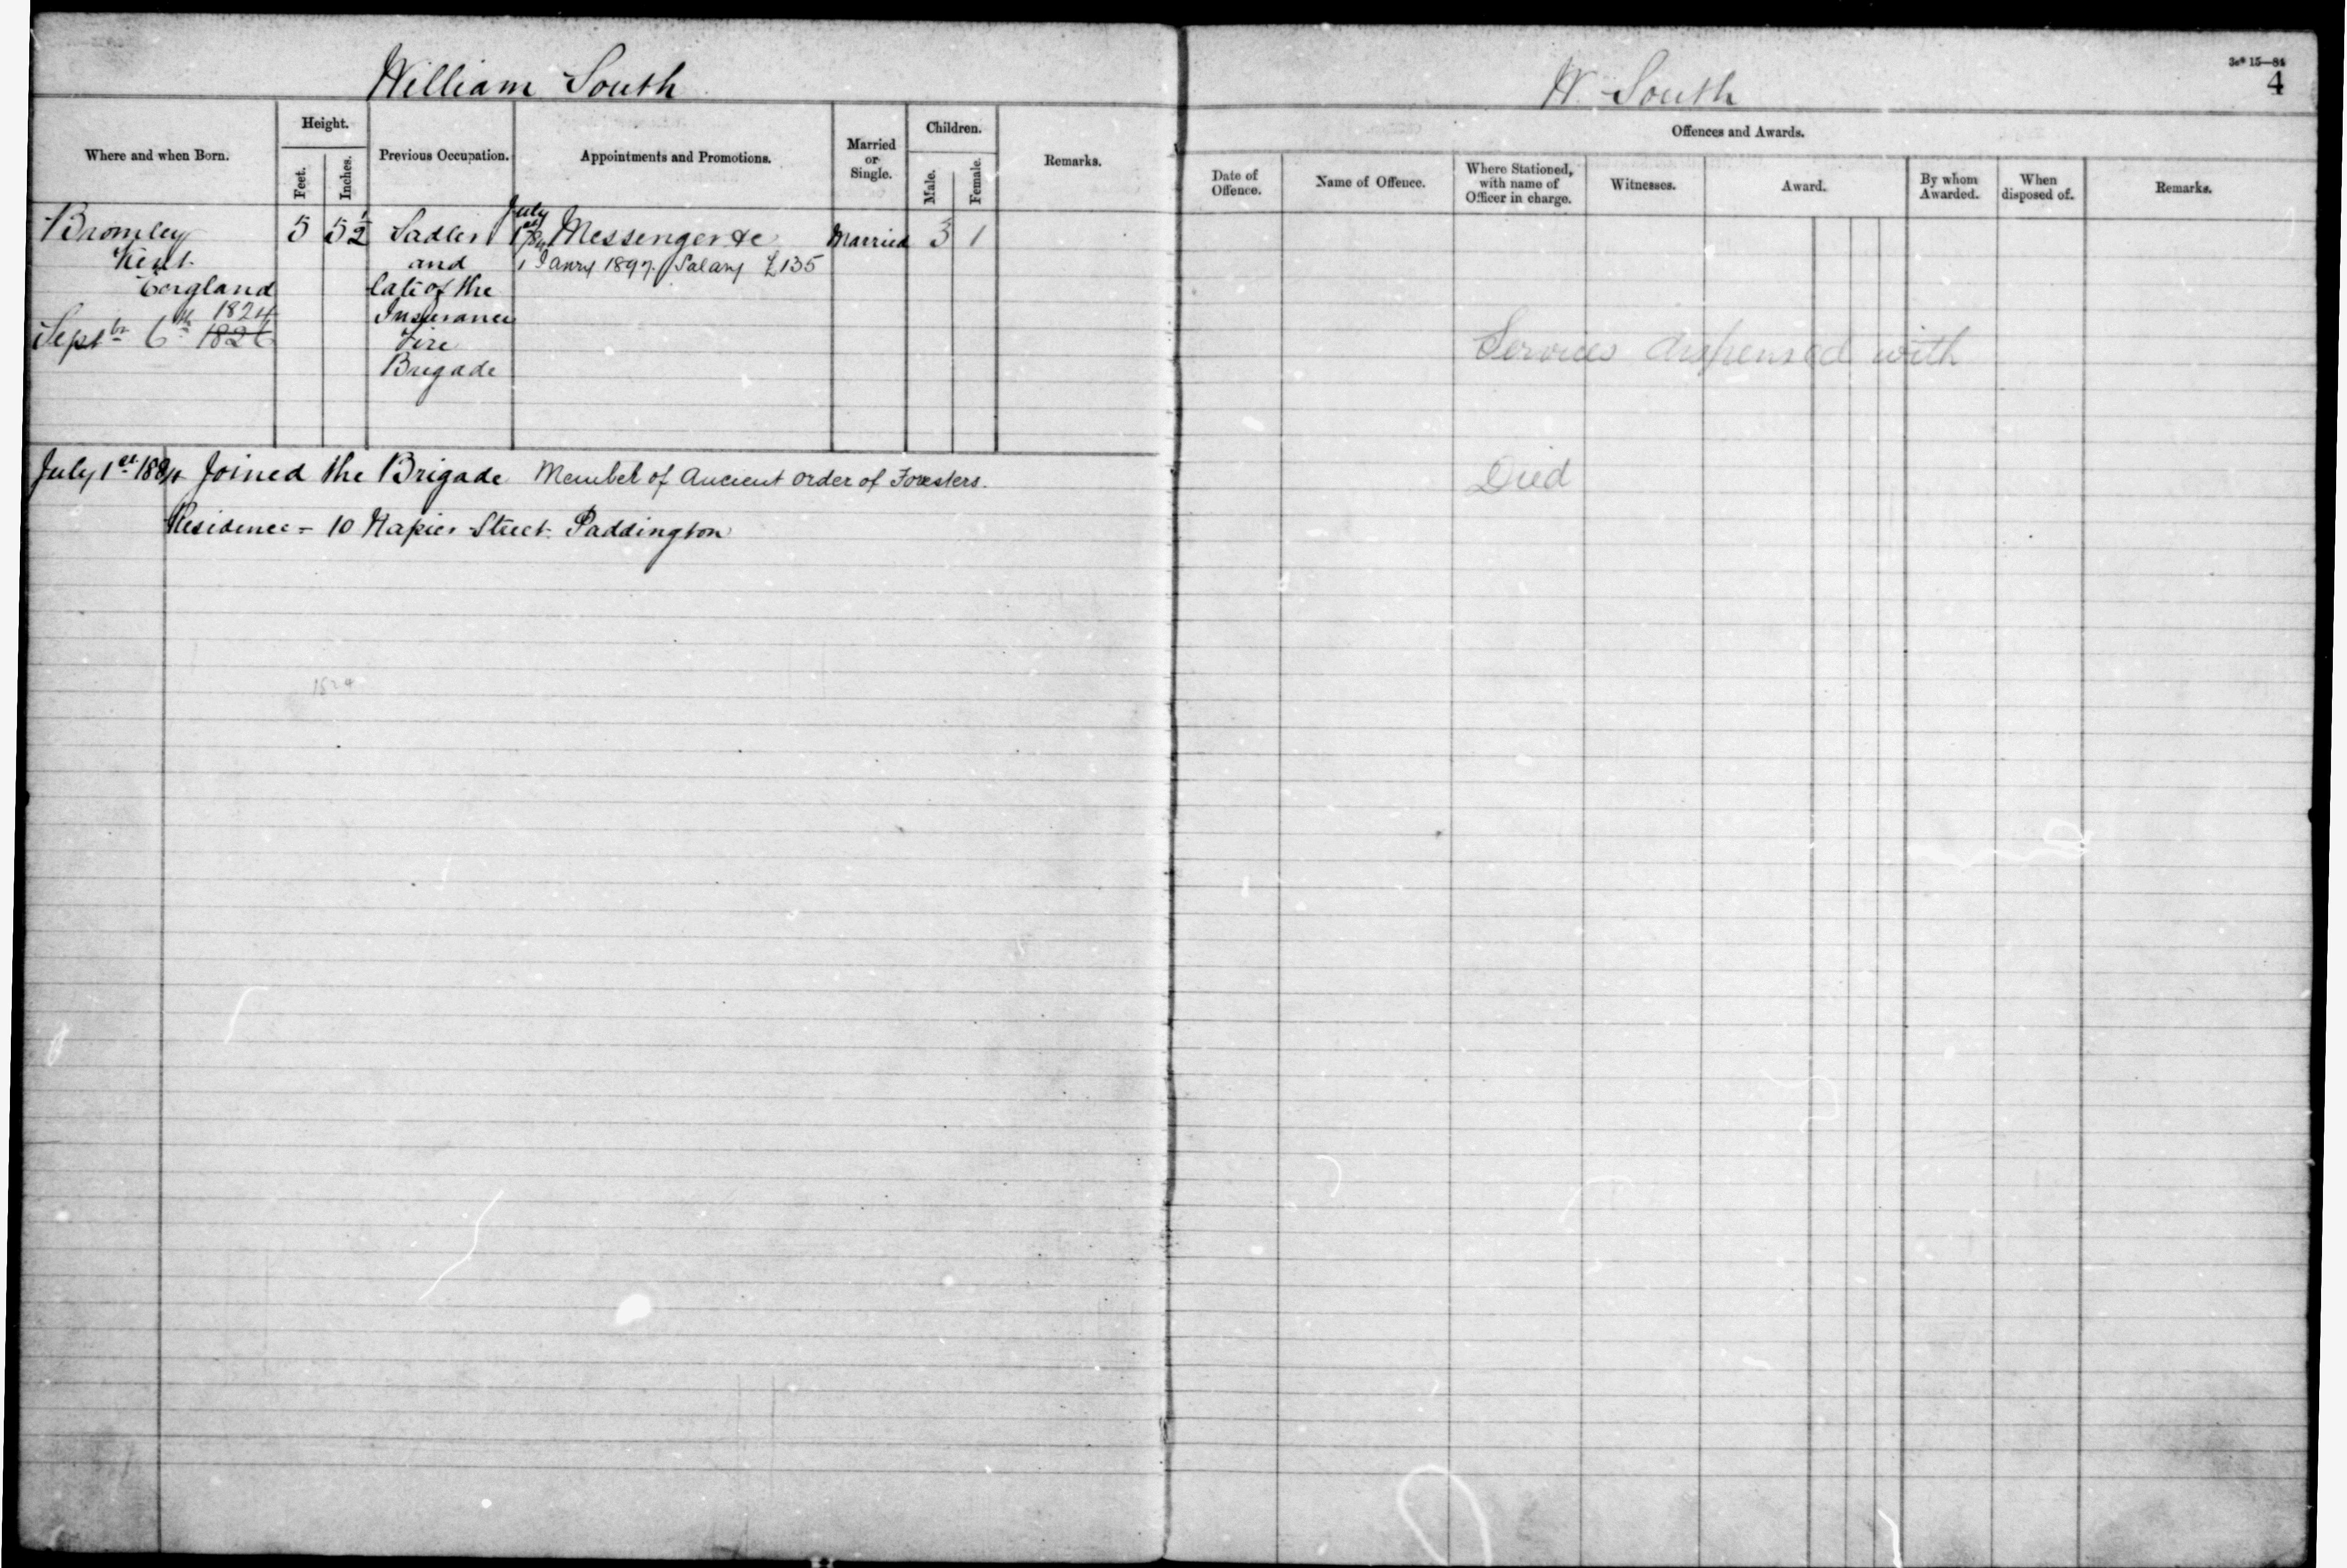 William South
Where and when Born.
Height.
Feet.
Inches.
Previous Occupation.
Appointments and Promotions.
Married
or
Single.
Children.
Male.
Female.
Remarks.
Bromley
Kent
England
1824
Septbr 6th 1826
5
5 1/2
Sadler
and
late of the
Insurance
Fire
Brigade
July
1st/84 Messenger &c
1 Janry 1897. Salary £135
Married
3
1
July 1st 1884 Joined the Brigade Member of Ancient Order of Foresters.
Residence - 10 Napier Street Paddington
1824
W. South
3e* 15—84
4
Offences and Awards.
Date of
Offence.
Name of Offence.
Where Stationed,
with name of
Officer in charge.
Witnesses.
Award.
By whom
Awarded.
When
disposed of.
Remarks.
Services dispensed with
Died